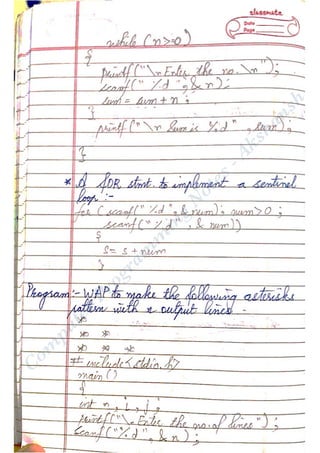 classmate
Date
Page
while (n>=0)
{
printf("\n Enter the no. \n");
scanf("%d", &n);
sum = sum + n;
}
printf("\n Sum is %d", sum);
}
* A FOR stmt. to implement a sentinel
loop:-
for (scanf("%d", &num); num>0;
scanf("%d", &num))
{
S = S + num
}
Program:- WAP to make the following asterisks
pattern with n output lines -
*
* *
* * *
# include<stdio.h>
main()
{
int n, i, j;
printf("\n Enter the no. of lines");
scanf("%d", &n);